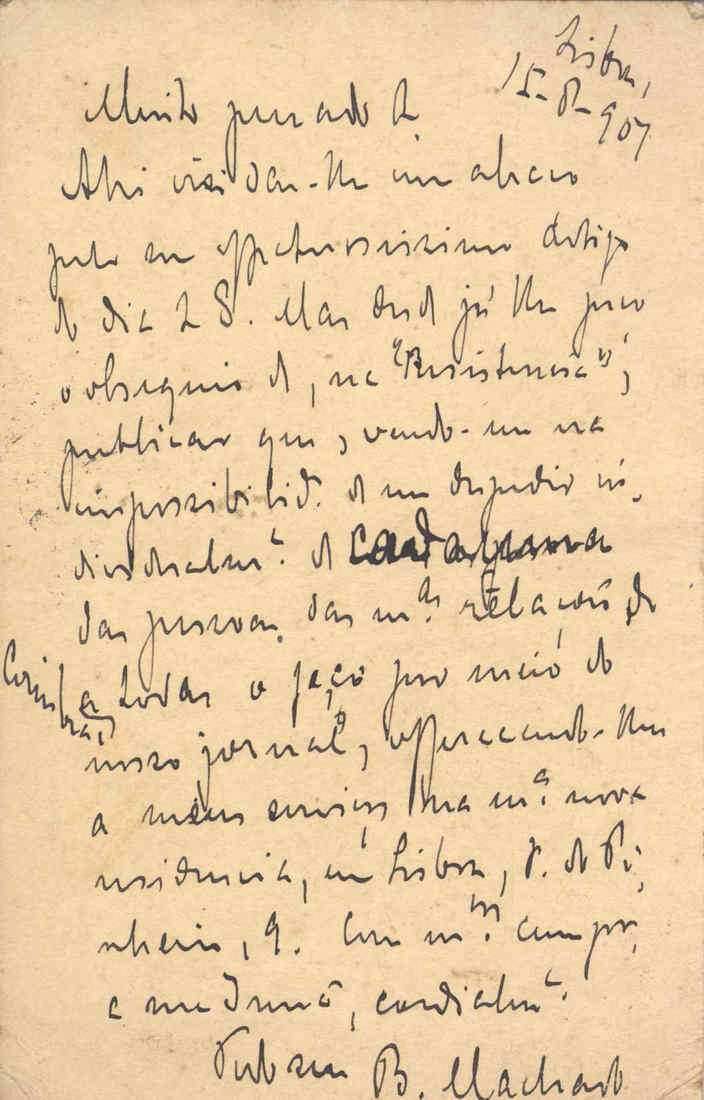 Lisboa,
15-8-907
Muito prezado
Ahi vai dar-lhe um abraço
pelo seu affectuosissimo artigo
do dia 28. Mas desde já lhe peço
o obsequio de, na "Resistencia",
publicar que, vendo-me na
impossibilid.e de me despedir in-
dividualm.e de
das pessoas das m.as relações de
Coimbra,
a todas o faço por meio do
nosso jornal, offerecendo-lhes
a meus serviços na m.a nova
residencia, em Lisboa, r. do Pi-
nheiro, 9. Com m.tos cumpr.
cordealm.e
B. Machado